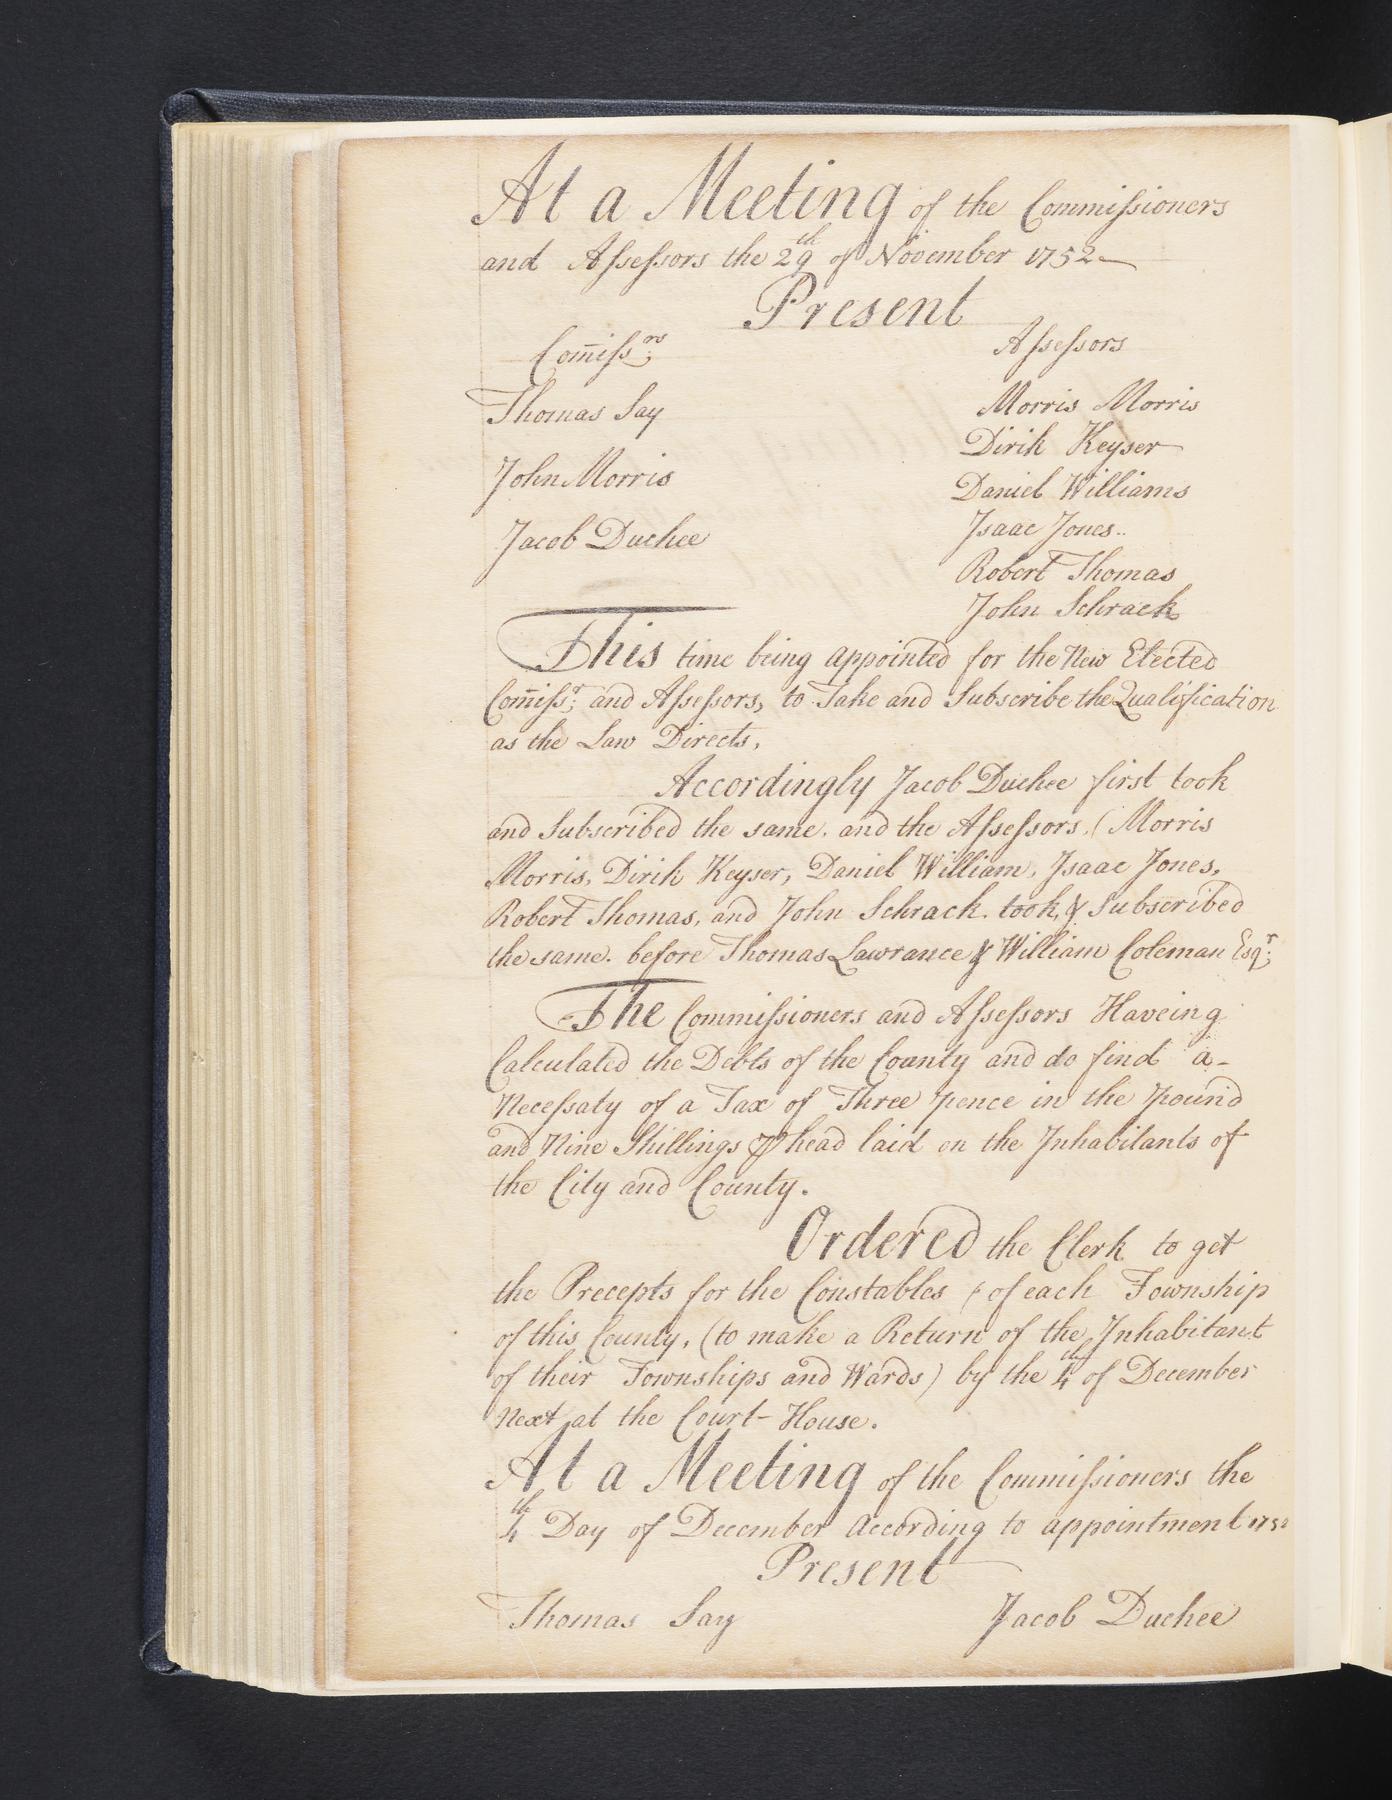 At a Meeting of the Commiſsioners
and Aſseſsors the 29th of November 1752
Present
Com̄iſsrs: Aſseſsors
Thomas Say
John Morris
Jacob Duchee
Morris Morris
Dirik Keyser
Daniel Williams
Isaac Jones..
Robert Thomas
John Schrack
This time being appointed for the New Elected
Com̄iſsr: and Aſseſsors, to Take and Subscribe the Qualification
as the Law Directs,
Accordingly Jacob Duchee first took
and Subscribed the same. and the Aſseſsors, (Morris
Morris, Dirik Keyser, Daniel William, Isaac Jones,
Robert Thomas, and John Schrack. took, & Subscribed
the same. before Thomas Lawrance & William Coleman Esqr:
The Commiſsioners and Aſseſsors Haveing
Calculated the Debts of the County and do find a-
Neceſsaty of a Tax of Three pence in the pound
and Nine Shillings ⅌ head laid on the Inhabitants of
the City and County.
Ordered the Clerk to get
the Precepts for the Constables (of each Township
of this County, (to make a Return of the Inhabitant
of their Townships and Wards) by the 4th of December
Next at the Court-House.
At a Meeting of the Commiſsioners the
4th Day of December According to appointment
Present
Thomas Say Jacob Duchee